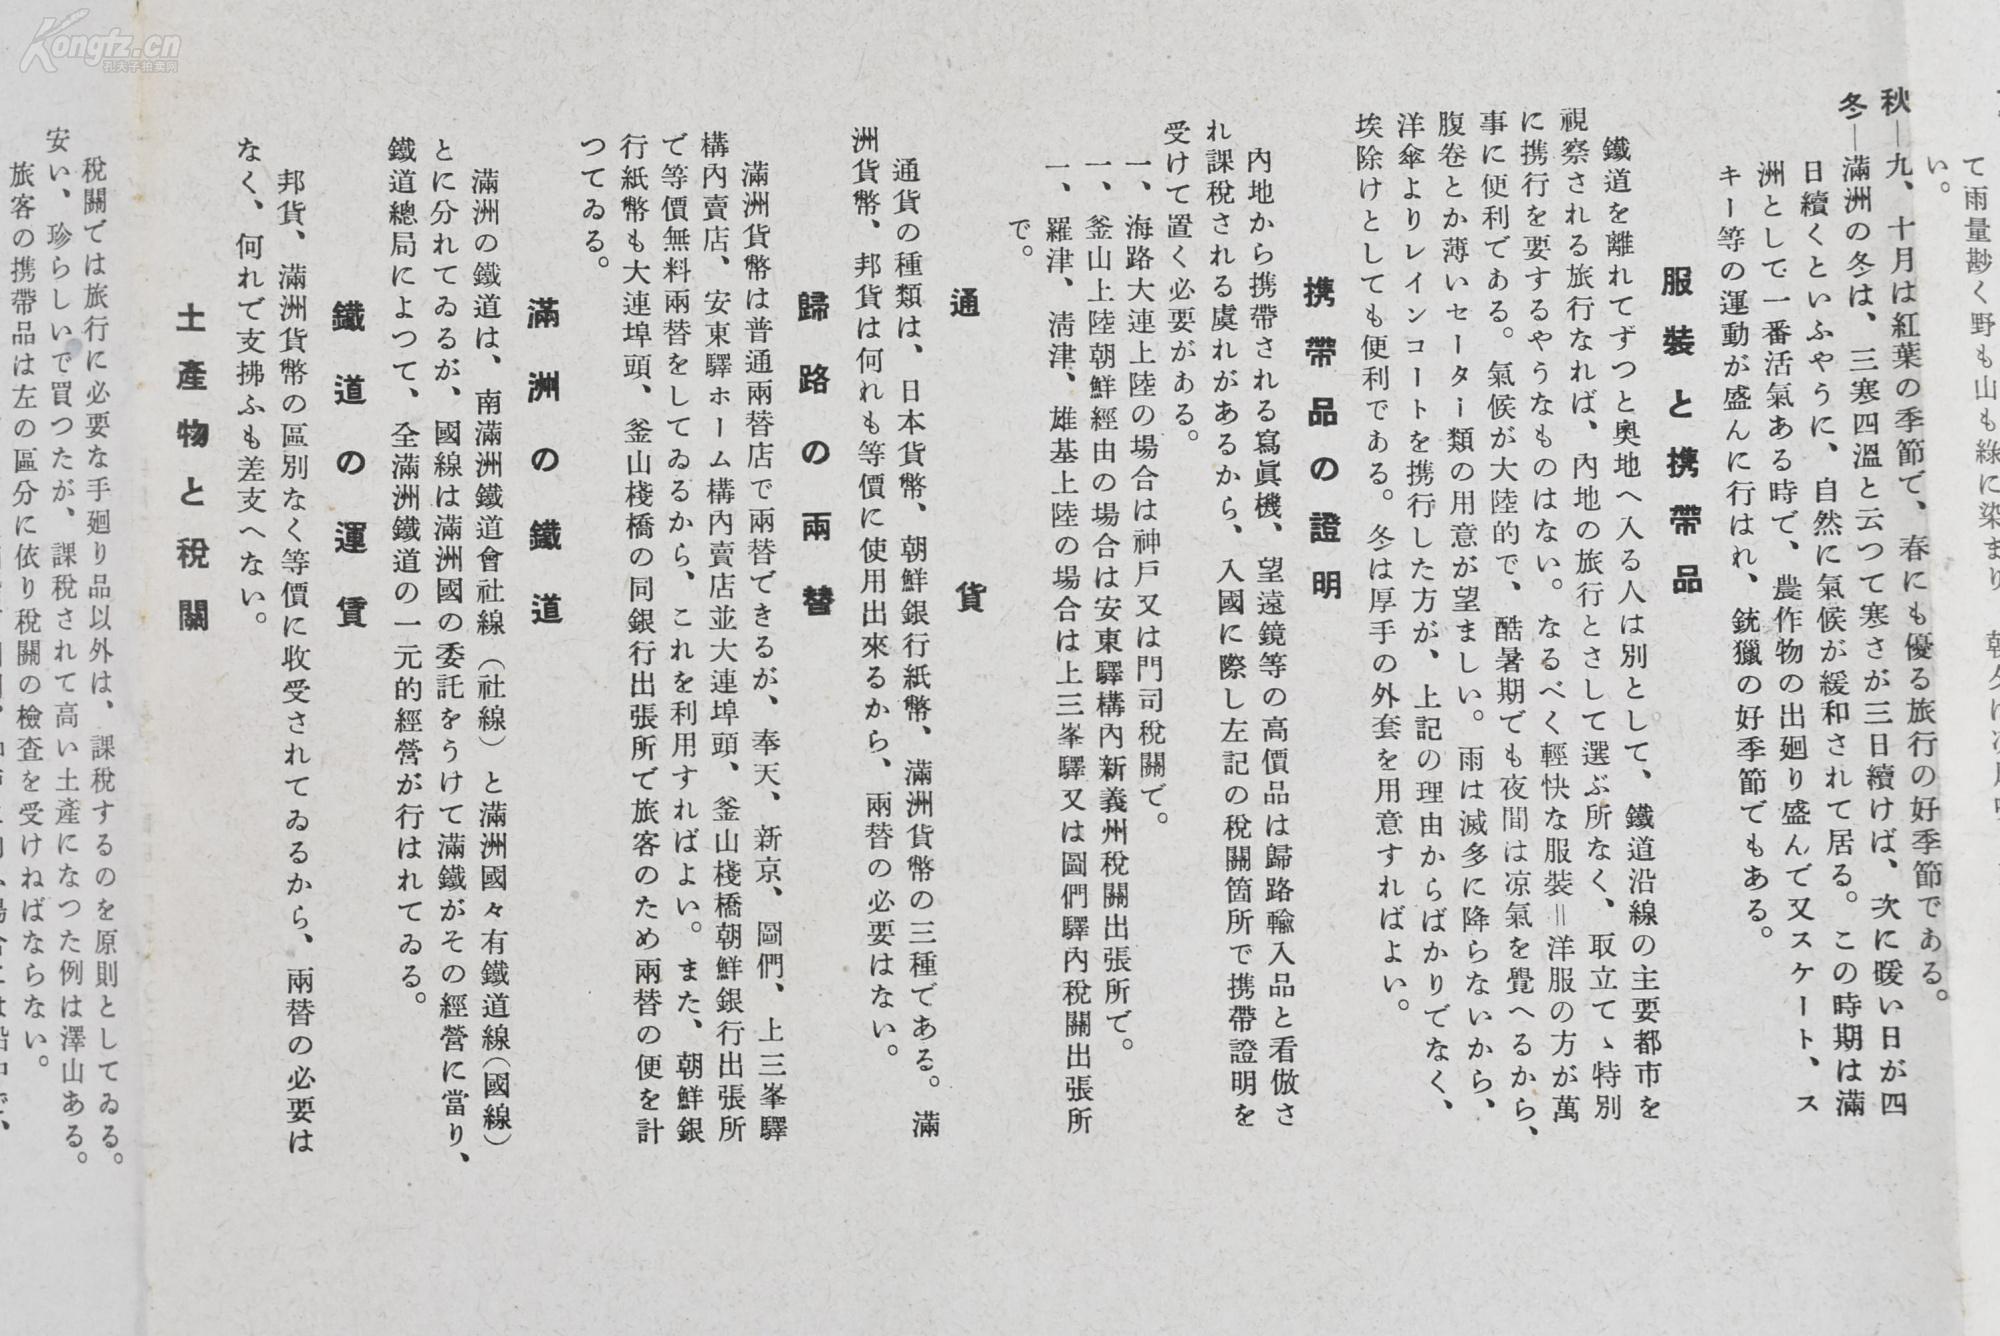 て雨量尠く野も山も綠に染まり
い。
秋―九、十月は紅葉の季節で、春にも優る旅行の好季節である。
冬―滿洲の冬は、三寒四溫と云つて寒さが三日續けば、次に暖い日が四
日續くといふやうに、自然に氣候が緩和されて居る。この時期は滿
洲としで一番活氣ある時で、農作物の出廻り盛んで又スケート、ス
キー等の運動が盛んに行はれ、銃獵の好季節でもある。
服裝と携帶品
鐵道を離れてずつと奧地へ入る人は別として、鐵道沿線の主要都市を
視察される旅行なれば、內地の旅行とさして選ぶ所なく、取立てゝ特別
に携行を要するやうなものはない。なるべく輕快な服裝＝洋服の方が萬
事に便利である。氣候が大陸的で、酷暑期でも夜間は凉氣を覺へるから、
腹卷とか薄いセーター類の用意が望ましい。雨は滅多に降らないから、
洋傘よりレインコートを携行した方が、上記の理由からばかりでなく、
埃除けとしても便利である。冬は厚手の外套を用意すればよい。
携帶品の證明
內地から携帶される寫眞機、望遠鏡等の高價品は歸路輸入品と看倣さ
れ課稅される虞れがあるから、入國に際し左記の稅關箇所で携帶證明を
受けて置く必要がある。
一、海路大連上陸の場合は神戶又は門司稅關で。
一、釜山上陸朝鮮經由の場合は安東驛構內新義州稅關出張所で。
一、羅津、淸津、雄基上陸の場合は上三峯驛又は圖們驛內稅關出張所
で。
通貨
通貨の種類は、日本貨幣、朝鮮銀行紙幣、滿洲貨幣の三種である。滿
洲貨幣、邦貨は何れも等價に使用出來るから、兩替の必要はない。
歸路の兩替
滿洲貨幣は普通兩替店で兩替できるが、奉天、新京、圖們、上三峯驛
構內賣店、安東驛ホーム構內賣店並大連埠頭、釜山棧橋朝鮮銀行出張所
で等價無料兩替をしてゐるから、これを利用すればよい。また、朝鮮銀
行紙幣も大連埠頭、釜山棧橋の同銀行出張所で旅客のため兩替の便を計
つてゐる。
滿洲の鐵道
滿洲の鐵道は、南滿洲鐵道會社線（社線）と滿洲國々有鐵道線（國線）
とに分れてゐるが、國線は滿洲國の委託をうけて滿鐵がその經營に當り、
鐵道總局によつて、全滿洲鐵道の一元的經營が行はれてゐる。
鐵道の運賃
邦貨、滿洲貨幣の區別なく等價に收受されてゐるから、兩替の必要は
なく、何れで支拂ふも差支へない。
土產物と稅關
稅關では旅行に必要な手廻り品以外は、課稅するのを原則としてゐる。
安い、珍らしいで買つたが、課稅されて高い土產になつた例は澤山ある。
旅客の携帶品は左の區分に依り稅關の檢査を受けねばならない。
Kongfz.cn
孔夫子拍卖网